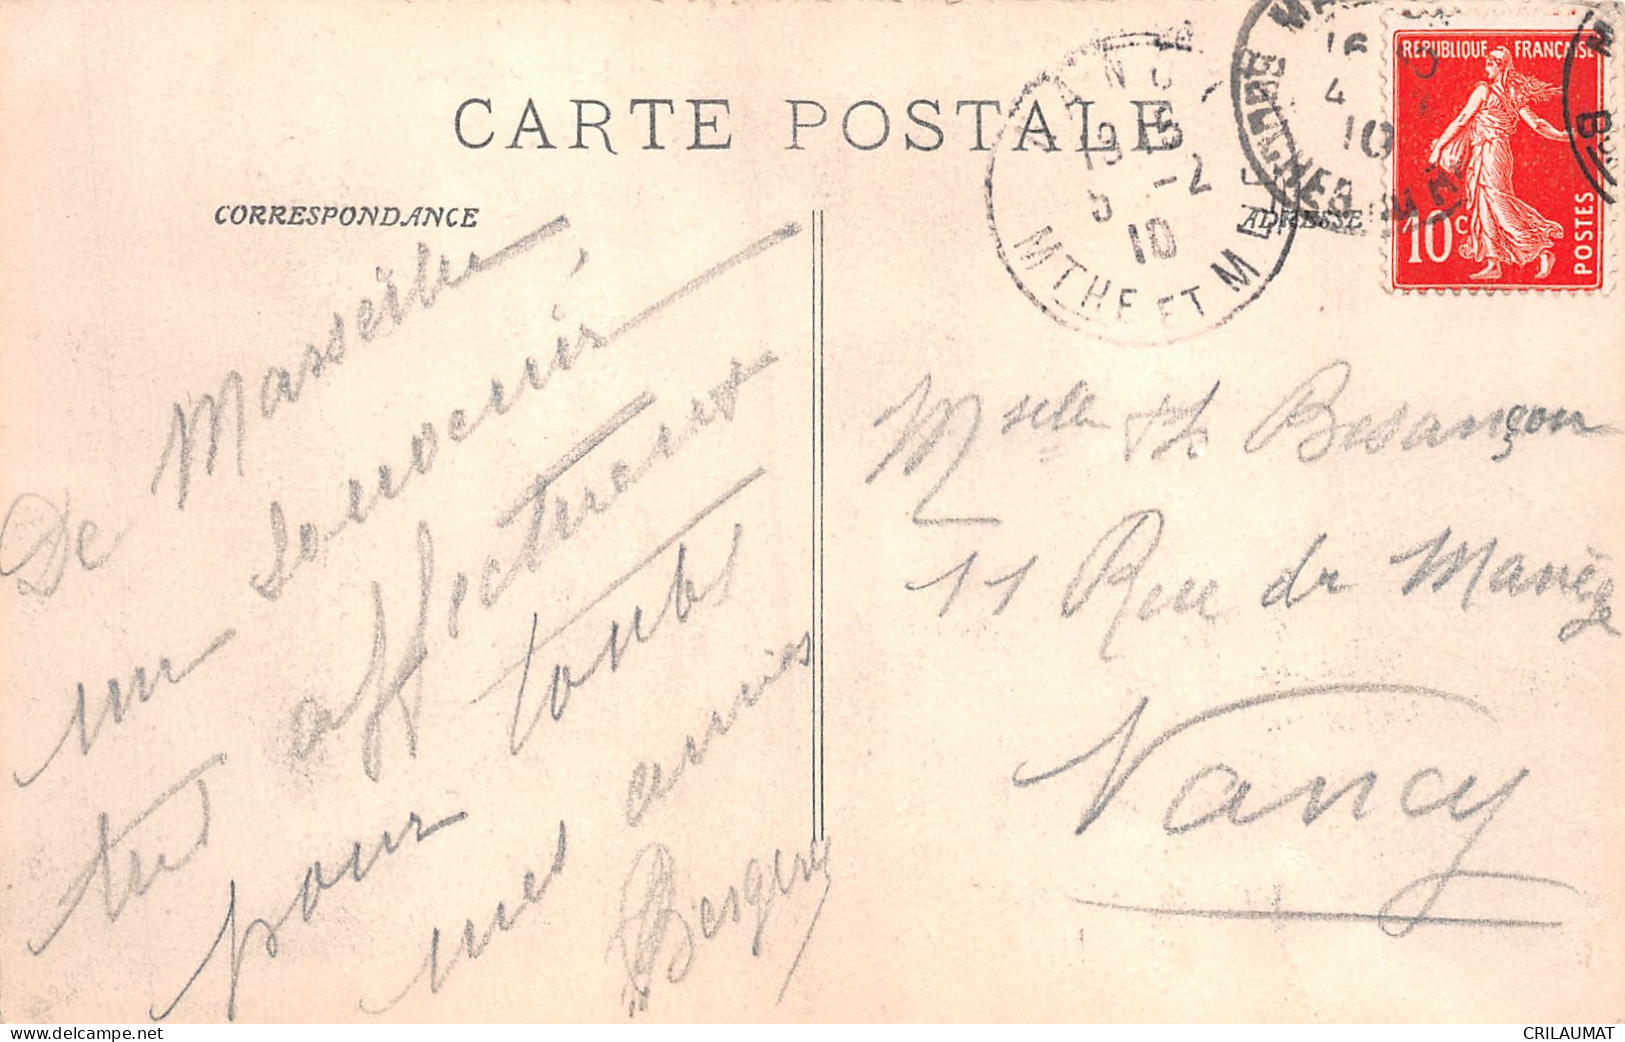 CARTE POSTALE
CORRESPONDANCE
ADRESSE
REPUBLIQUE FRANÇAISE
10c
POSTES
16
4
10
NANCY
19 15
5 -2
10
MTHE ET M
De Marseille,
un souvenir
très affectueux
pour toutes
mes amies
Mselle Th Besançon
11 Rue du Manège
Nancy
CRILAUMAT
www.delcampe.net